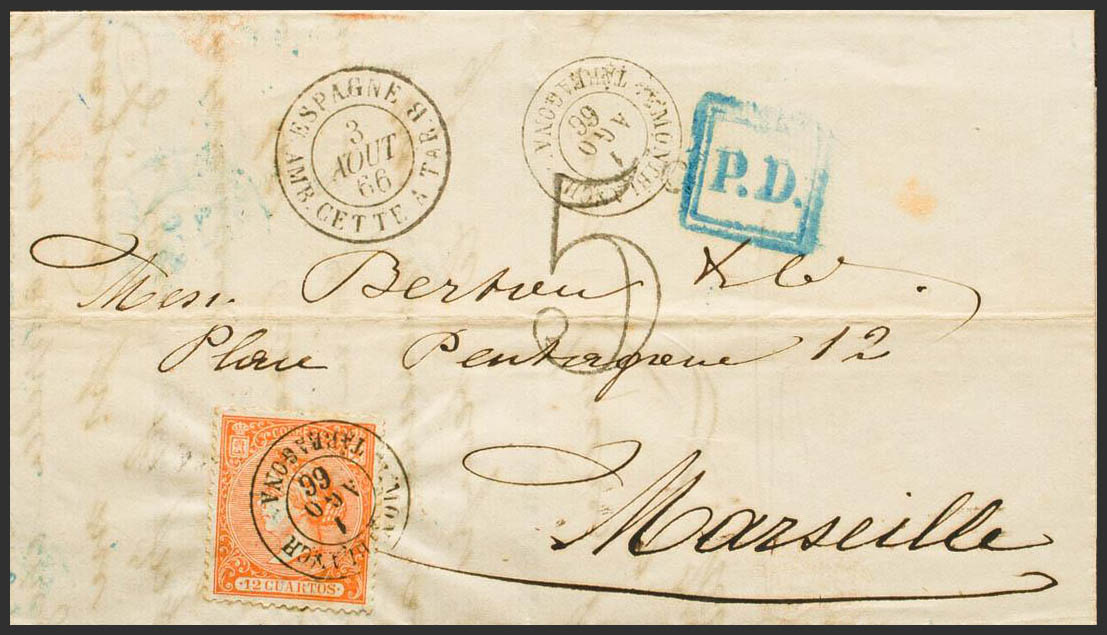 ESPAGNE
3
AOUT
66
AMB. CETTE A TAR. B
TARRAGONA.
1
AGO
66
P.D.
5
Mess. & Cie.
12
Marseille
CORREOS
TARRAGONA.
1
AGO
66
·12 CUARTOS·